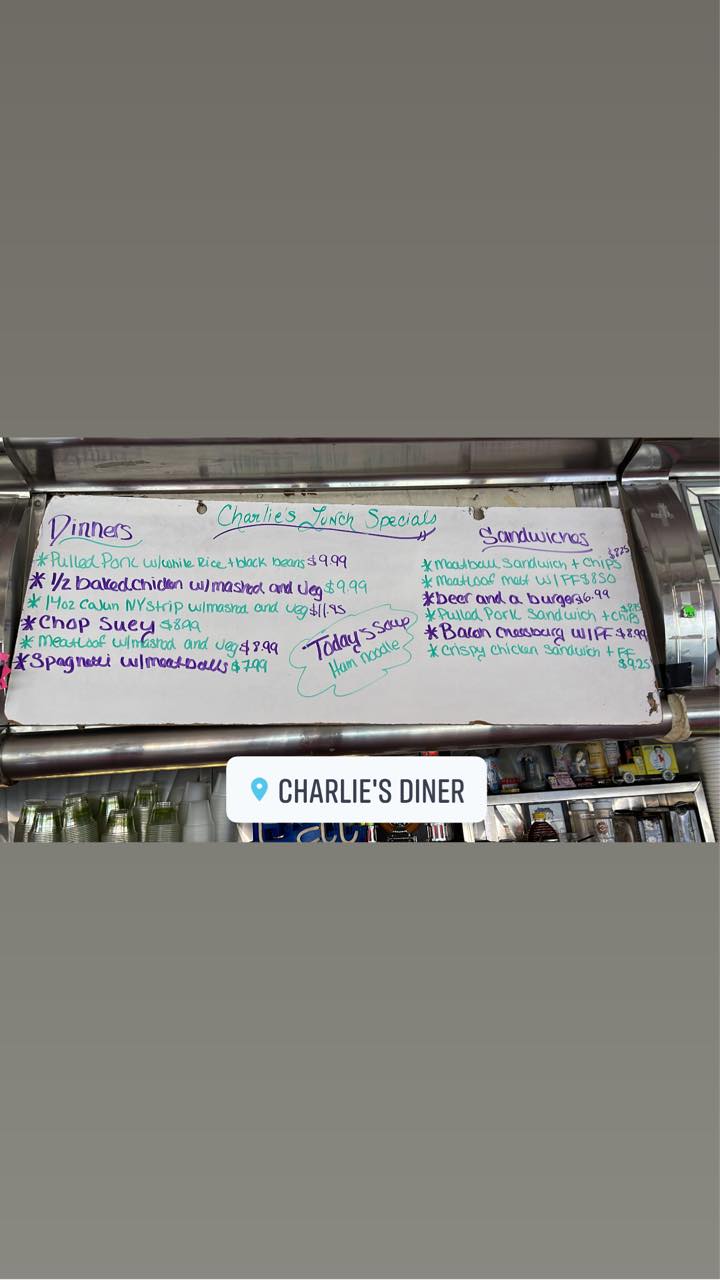 Charlie's Lunch Specials
Dinners
*Pulled Pork w/white Rice + black beans $9.99
*1/2 baked chicken w/mashed and veg $9.99
*14oz Cajun NY Strip w/mashed and veg $11.95
*Chop Suey $8.99
*Meatloaf w/mashed and veg $8.99
*Spaghetti w/meatballs $7.99
Today's Soup
Ham noodle
Sandwiches
*Meatball Sandwich + Chips $8.25
*Meatloaf melt w/FF $8.50
*beer and a burger $6.99
*Pulled Pork Sandwich + chips
*Bacon cheesburg w/FF $8.99
*Crispy chicken Sandwich + FF
$9.25
CHARLIE'S DINER